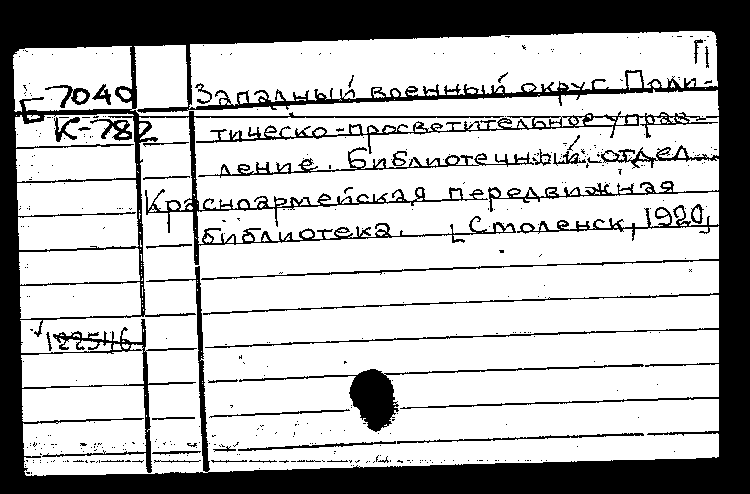 П
Б 7040
К-782
Западный военный округ. Поли-
тическо-просветительное управ-
ление. Библиотечный отдел.
Красноармейская передвижная
библиотека. [Смоленск, 1920]
122546